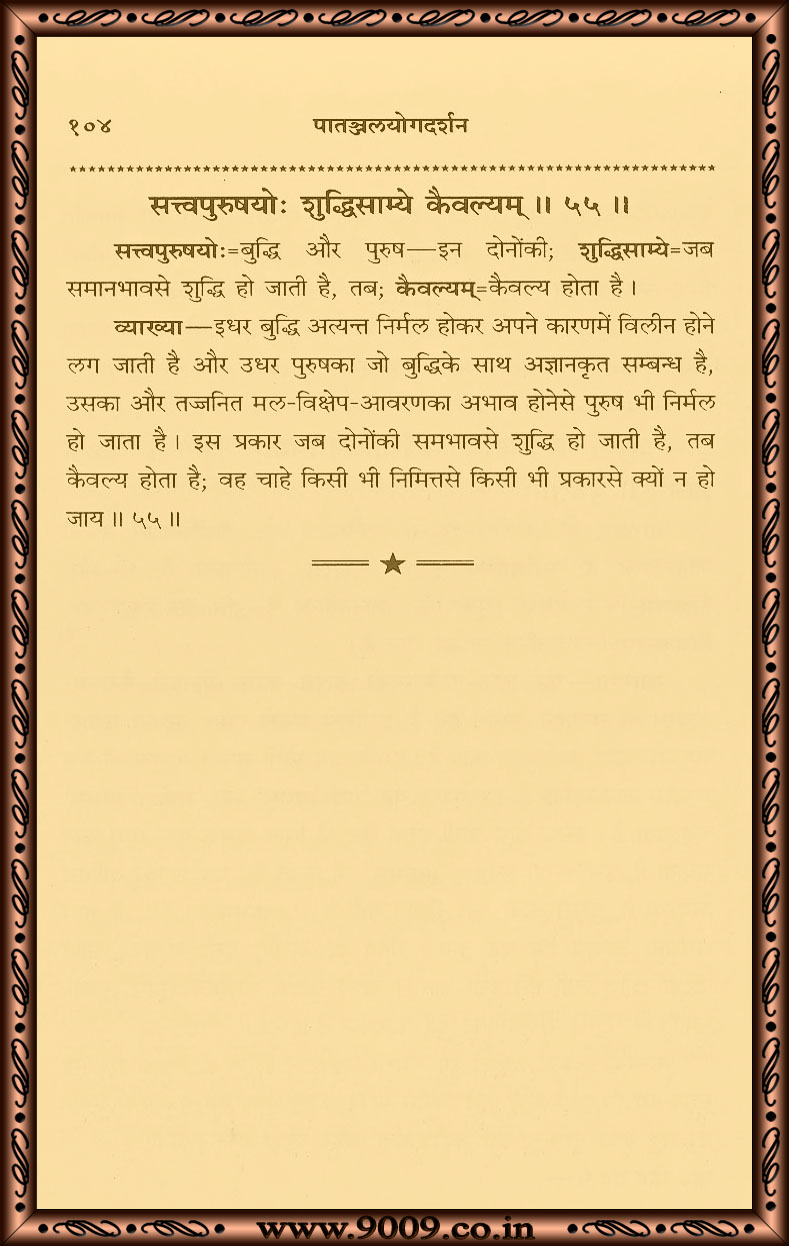 १०४ पातञ्जलयोगदर्शन
सत्त्वपुरुषयोः शुद्धिसाम्ये कैवल्यम् ॥ ५५ ॥
सत्त्वपुरुषयोः=बुद्धि और पुरुष—इन दोनोंकी; शुद्धिसाम्ये=जब
समानभावसे शुद्धि हो जाती है, तब; कैवल्यम्=कैवल्य होता है।
व्याख्या—इधर बुद्धि अत्यन्त निर्मल होकर अपने कारणमें विलीन होने
लग जाती है और उधर पुरुषका जो बुद्धिके साथ अज्ञानकृत सम्बन्ध है,
उसका और तज्जनित मल-विक्षेप-आवरणका अभाव होनेसे पुरुष भी निर्मल
हो जाता है। इस प्रकार जब दोनोंकी समभावसे शुद्धि हो जाती है, तब
कैवल्य होता है; वह चाहे किसी भी निमित्तसे किसी भी प्रकारसे क्यों न हो
जाय ॥ ५५ ॥
www.9009.co.in